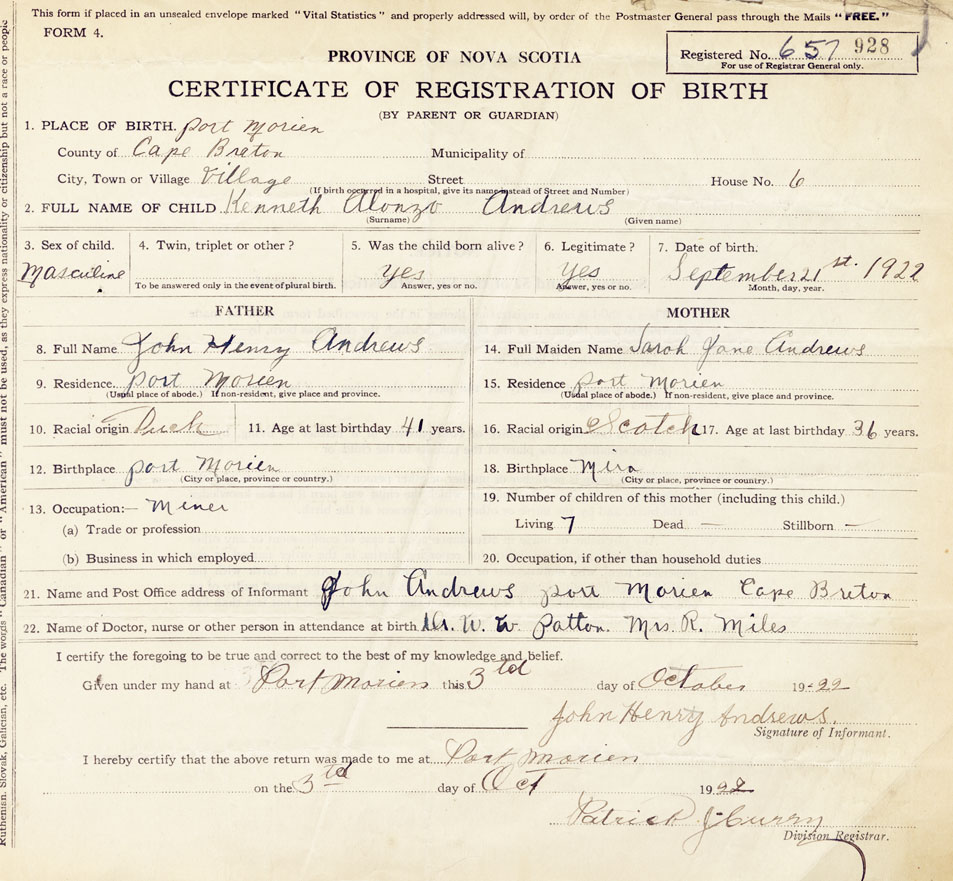 This form if placed in an unsealed envelope marked "Vital Statistics" and properly addressed will, by order of the Postmaster General pass through the Mails "FREE."
FORM 4.
Registered No. 657 928
For use of Registrar General only.
PROVINCE OF NOVA SCOTIA
CERTIFICATE OF REGISTRATION OF BIRTH
(BY PARENT OR GUARDIAN)
1. PLACE OF BIRTH. Port Morien
County of Cape Breton Municipality of
City, Town or Village Village Street House No. 6
(If birth occurred in a hospital, give its name instead of Street and Number)
2. FULL NAME OF CHILD Kenneth Alonzo Andrews
(Surname) (Given name)
3. Sex of child. 4. Twin, triplet or other? 5. Was the child born alive? 6. Legitimate? 7. Date of birth.
Masculine yes yes September 21st. 1922
To be answered only in the event of plural birth. Answer, yes or no. Answer, yes or no. Month, day, year.
FATHER MOTHER
8. Full Name John Henry Andrews 14. Full Maiden Name Sarah Jane Andrews
9. Residence port Morien 15. Residence port Morien
(Usual place of abode.) If non-resident, give place and province. (Usual place of abode.) If non-resident, give place and province.
10. Racial origin 11. Age at last birthday 41 years. 16. Racial origin Scotch 17. Age at last birthday 36 years.
12. Birthplace port Morien 18. Birthplace Mira
(City or place, province or country.) (City or place, province or country.)
13. Occupation:— Miner 19. Number of children of this mother (including this child.)
(a) Trade or profession Living 7 Dead — Stillborn —
(b) Business in which employed 20. Occupation, if other than household duties
21. Name and Post Office address of Informant John Andrews port Morien Cape Breton
22. Name of Doctor, nurse or other person in attendance at birth Dr. W. W. Patton. Mrs. R. Miles
I certify the foregoing to be true and correct to the best of my knowledge and belief.
Given under my hand at Port Morien this 3td day of October 19-22
John Henry Andrews.
Signature of Informant.
I hereby certify that the above return was made to me at Port Morien
on the 3td day of Oct 1922
Patrick J. Curry
Division Registrar.
Ruthenian, Slovak, Galician, etc. The words "Canadian" or "American" must not be used, as they express nationality or citizenship but not a race or people